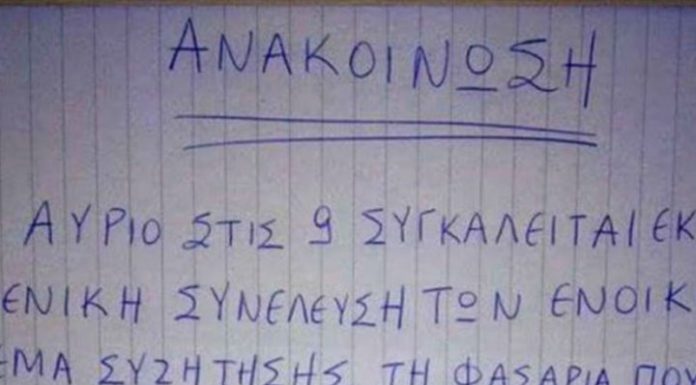 ΑΝΑΚΟΙΝΩΣΗ
ΑΥΡΙΟ ΣΤΙΣ 9 ΣΥΓΚΑΛΕΙΤΑΙ ΕΚ
ΕΝΙΚΗ ΣΥΝΕΛΕΥΣΗ ΤΩΝ ΕΝΟΙΚ
ΕΜΑ ΣΥΖΗΤΗΣΗΣ ΤΗ ΦΑΣΑΡΙΑ ΠΟΥ